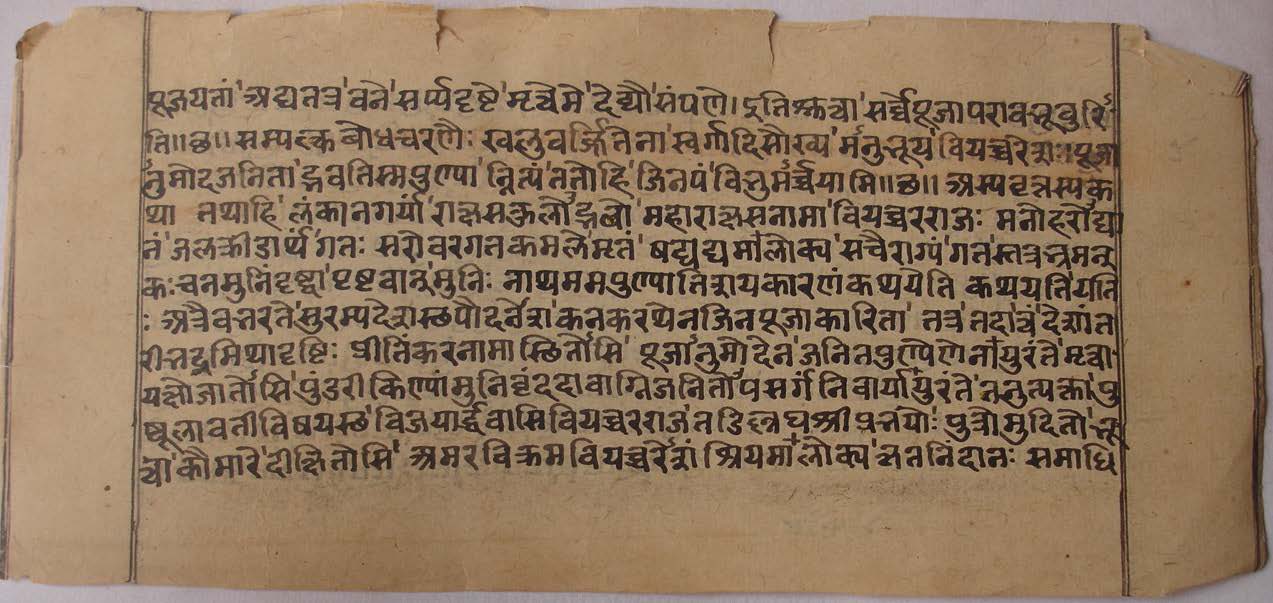 पूजयतां अद्यतत्र वने सर्प्पदष्टे मृत्वेमे देव्यौ संपणे। इति श्रुत्वा सर्व्वे पूजापरा वभूवुरि
ति॥छ॥ सम्यक्त्कवोधचरणैः खलु वर्ज्जितेना स्वर्गादिसौख्य मनुभूय वियच्चरेशः। पूजा
नुमोदजनिता द्भवतिस्म पुण्या न्नित्यं ततोहि जिनपं विभुमर्च्चयामि॥छ॥ अस्य वृत्तस्य क
था तथाहि लंकानगर्यां राक्षसकुलोद्भवो महाराक्षसनामा वियच्चरराजः मनोहरोद्या
नं जलक्रीडार्थं गतः सरोवरगतकमले मृतं षट्पद्यमालोक्य सवैराग्यं गतस्तत्रभ्रमन्
कंचनमुनिं दृष्ट्वा पृष्टवान् मुनिः नाथ मम पुण्यातिशयकारणं कथयेति कथयति यति
ः अत्रैवभरते सुरम्यदेशस्छपौदनेशा कनकरथेन जिनपूजा कारिता तत्र तदा त्वं देशांत
री भद्रमिथादृष्टिः प्रीतिंकरनामा स्छितोसि पूजानुमोदेन जनितपुण्येणेनायुरंते मृत्वा
यक्षो जातोसि पुंडरीकिण्यां मुनिवृंददावाग्निजनितोपसर्गं निवार्यायुरंते तनुत्यक्ता पु
ष्कलावतीविषयस्छ विजयार्द्धवासि वियच्चरराज तडिल्लघ श्रीप्रभयोः पुत्रो मुदितो भू
त्वा कौमारे दीक्षितोसि अमरविक्रम वियच्चरेशं श्रियमालोक्य कृतनिदानः समाधि